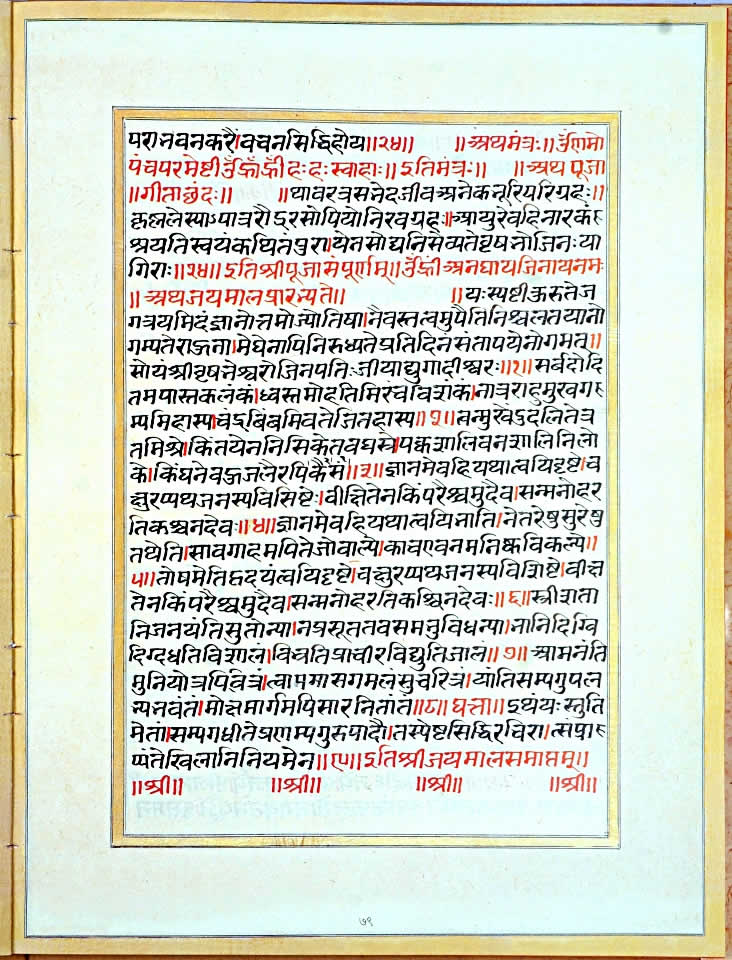 परानवनकरैं।वचनसिद्धिहोय॥२४॥ ॥अथमंत्रः॥ उँणमो
पंचपरमेष्टीउँह्राँह्रीँहःहःस्वाहाः॥ इतिमंत्रः॥ ॥अथ पूजा
॥गीताछंदः॥ ॥थावरत्रसनेदजीवअनेकनूरिपरिग्रहः॥
योनिरवग्रहः॥आयुरेवदिनारकं
श्रयतिस्वयंकथितंपुरा।येतसोद्यनिसेव्यतेवृषनोजिनःया
गिराः॥२४॥इतिश्रीपूजासंपूर्णम्॥उँह्रीँअनघायजिनायनमः
॥अथजयमालप्रारभ्यते॥ ॥यःस्पष्टीकुरुतेज
गत्रयमिदंज्ञानोत्तमोज्योतिषा।नैवस्तत्वमुपैतिनिश्चलतयानो
गम्यतेराऊना।मेघेनापिनिरुध्यतेप्रतिदिनंसंतापयेनोगमत्॥
सोयंश्रीवृषनेश्वरोजिनपतिःजीयाद्युगादीश्वरः॥१॥सर्वदोदि
तमपास्तकलंकं।ध्वस्तमोहतिमिरंचविशंकं।नात्रराहुमुखग
म्यमिहास्य।चंद्रबिंबमिवतेजितहास्य॥२॥त्वन्मुखेंद्रदलितेत्र
तमिश्रे।किंतयेननिसिकेतवघस्रे।पक्कशालिवनशालिनिलो
के।किंघनेवऊजलैरपिकैसं॥३॥ज्ञानमेवहियथात्वयिदृष्टे।च
क्षुरप्यथजनस्यविसिष्टं।वीक्षितेनकिंपरैश्चमुदैव।सन्मनोहर
तिकश्चनदेवः॥४॥ज्ञानमेवहियथात्वयिनाति।नेतरेषुसुरेषु
तथेति।सावगाढमपितेजोवाल्ये।काचएवनमतिष्कविकल्पे॥
५॥तोषमेतिहृदयंत्वयिदृष्टे।चक्षुरप्यथजनस्यविशिष्टे।वीक्ष
तेनकिंपरैश्चमुदैव।सन्मनोहरतिकश्चिनदेवः॥६॥स्त्रीशता
निजनयंतिसुतोन्या।नप्रसूततवसमनुविधन्या।नानिदिग्वि
दिग्दधतिविशालं।विचतिप्राचीरविद्युतिजालं॥७॥आमनंति
मुनियोत्रपवित्रं।त्वाप्तमासगमलंसुचरित्रं।यांतिसम्यगुपल
भ्यनवंतं।मोक्षमार्गमपिसारनितांतं॥८॥घत्ता॥इथंयःस्तुति
मेतां।सम्यगधीतेप्रणम्यगुरुपादौ।तस्येष्टसिद्धिरचिरा।त्संप्रा
प्यंतेखिलानिनियमेन॥९॥इतिश्रीजयमालसमाप्तम्॥
॥श्री॥ ॥श्री॥ ॥श्री॥ ॥श्री॥
७९